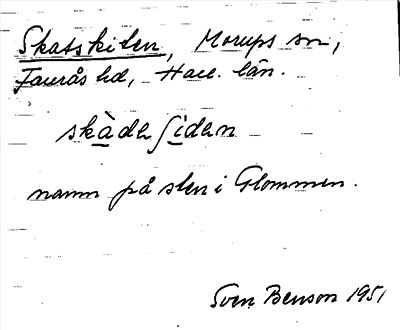 Skatskiten, Morups sn,
Faurås hd, Hall. län.
skàdaʃidən
namn på sten i Glommen.
Sven Benson 1951